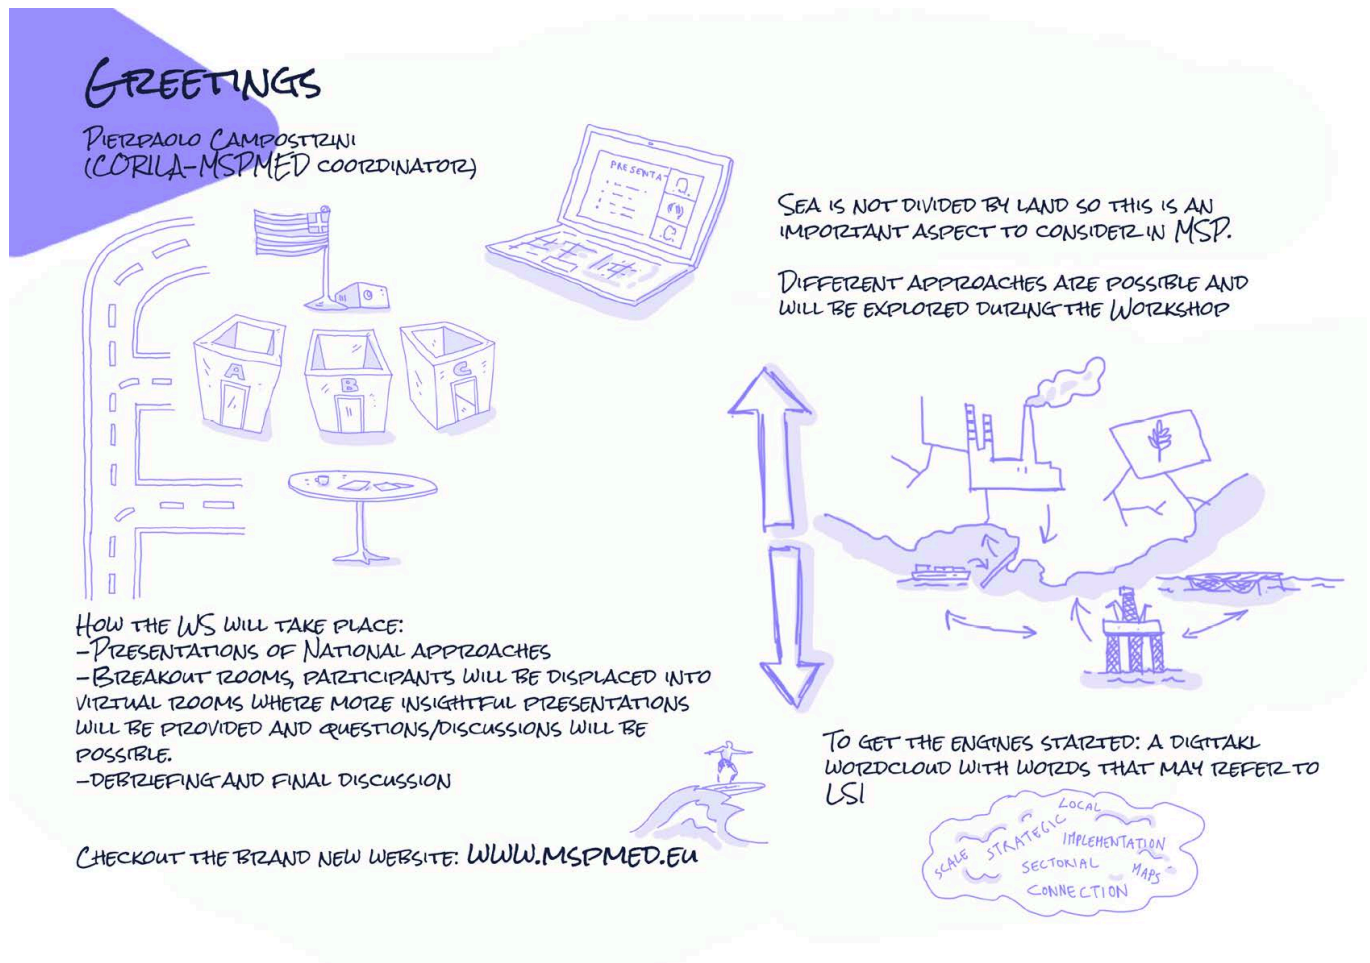 GREETINGS
PIERPAOLO CAMPOSTRINI
(CORILA-MSPMED COORDINATOR)
PRESENTAT
A
B
C
SEA IS NOT DIVIDED BY LAND SO THIS IS AN
IMPORTANT ASPECT TO CONSIDER IN MSP.
DIFFERENT APPROACHES ARE POSSIBLE AND
WILL BE EXPLORED DURING THE WORKSHOP
HOW THE WS WILL TAKE PLACE:
-PRESENTATIONS OF NATIONAL APPROACHES
-BREAKOUT ROOMS, PARTICIPANTS WILL BE DISPLACED INTO
VIRTUAL ROOMS WHERE MORE INSIGHTFUL PRESENTATIONS
WILL BE PROVIDED AND QUESTIONS/DISCUSSIONS WILL BE
POSSIBLE.
-DEBRIEFING AND FINAL DISCUSSION
CHECKOUT THE BRAND NEW WEBSITE: WWW.MSPMED.EU
TO GET THE ENGINES STARTED: A DIGITAKL
WORDCLOUD WITH WORDS THAT MAY REFER TO
LSI
LOCAL
SCALE STRATEGIC IMPLEMENTATION
SECTORIAL MAPS
CONNECTION